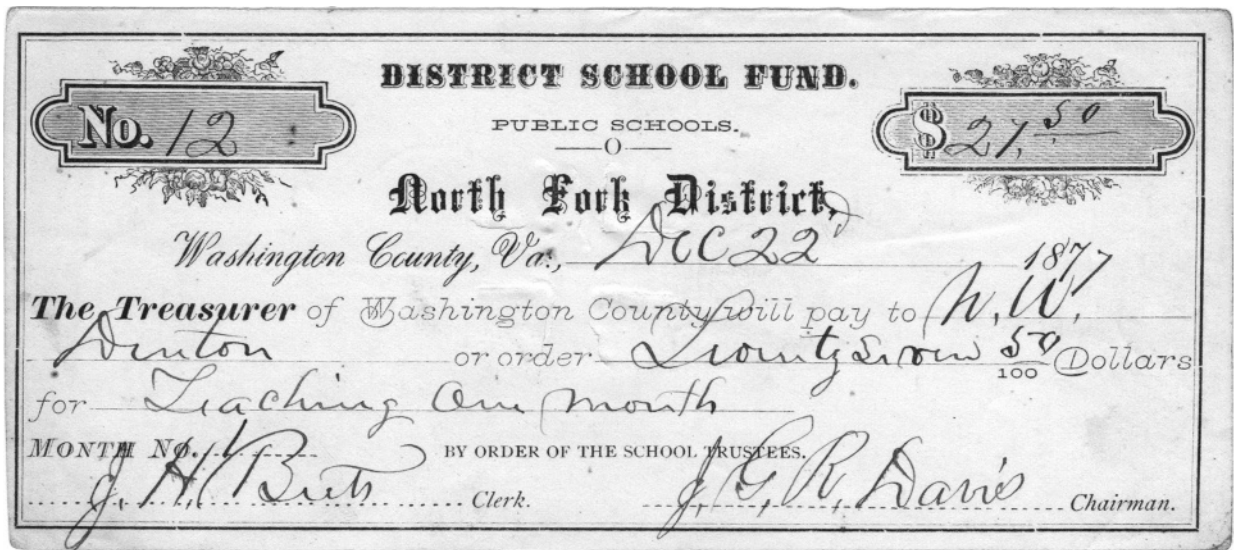 DISTRICT SCHOOL FUND.
No. 12
$27.50
PUBLIC SCHOOLS.
North Fork District,
Washington County, Va., Dec 22d 1877
The Treasurer of Washington County will pay to N. W.
Denton or order Twenty Seven 50/100 Dollars
for Teaching One month
MONTH NO. 1 BY ORDER OF THE SCHOOL TRUSTEES.
J. H. Clerk. J. G. R. Davis Chairman.